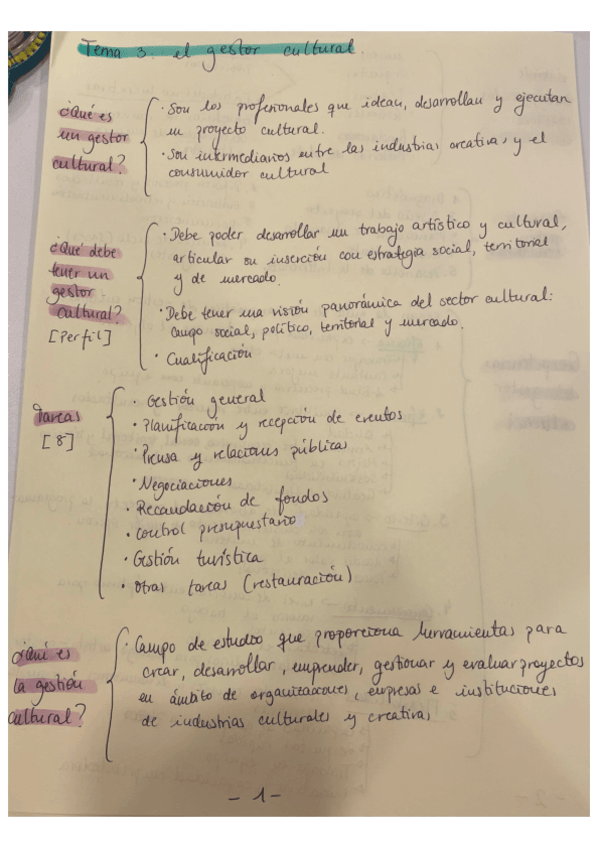 Tema 3. el gestor cultural.
¿Qué es
un gestor
cultural?
· Son los profesionales que idean, desarrollan y ejecutan
un proyecto cultural.
· Son intermediarios entre las industrias creativas y el
consumidor cultural
¿Qué debe
tener un
gestor
cultural?
[Perfil]
· Debe poder desarrollar un trabajo artístico y cultural,
articular su inserción con estrategia social, territorial
y de mercado.
· Debe tener una visión panorámica del sector cultural:
campo social, político, territorial y mercado.
· Cualificación
Tareas
[8]
· Gestión general
· Planificación y recepción de eventos
· Prensa y relaciones públicas
· Negociaciones
· Recaudación de fondos
· control presupuestario
· Gestión turística
· Otras tareas (restauración)
¿Qué es
la gestión
cultural?
· Campo de estudio que proporciona herramientas para
crear, desarrollar, emprender, gestionar y evaluar proyectos
en ámbito de organizaciones, empresas e instituciones
de industrias culturales y creativas
- 1 -